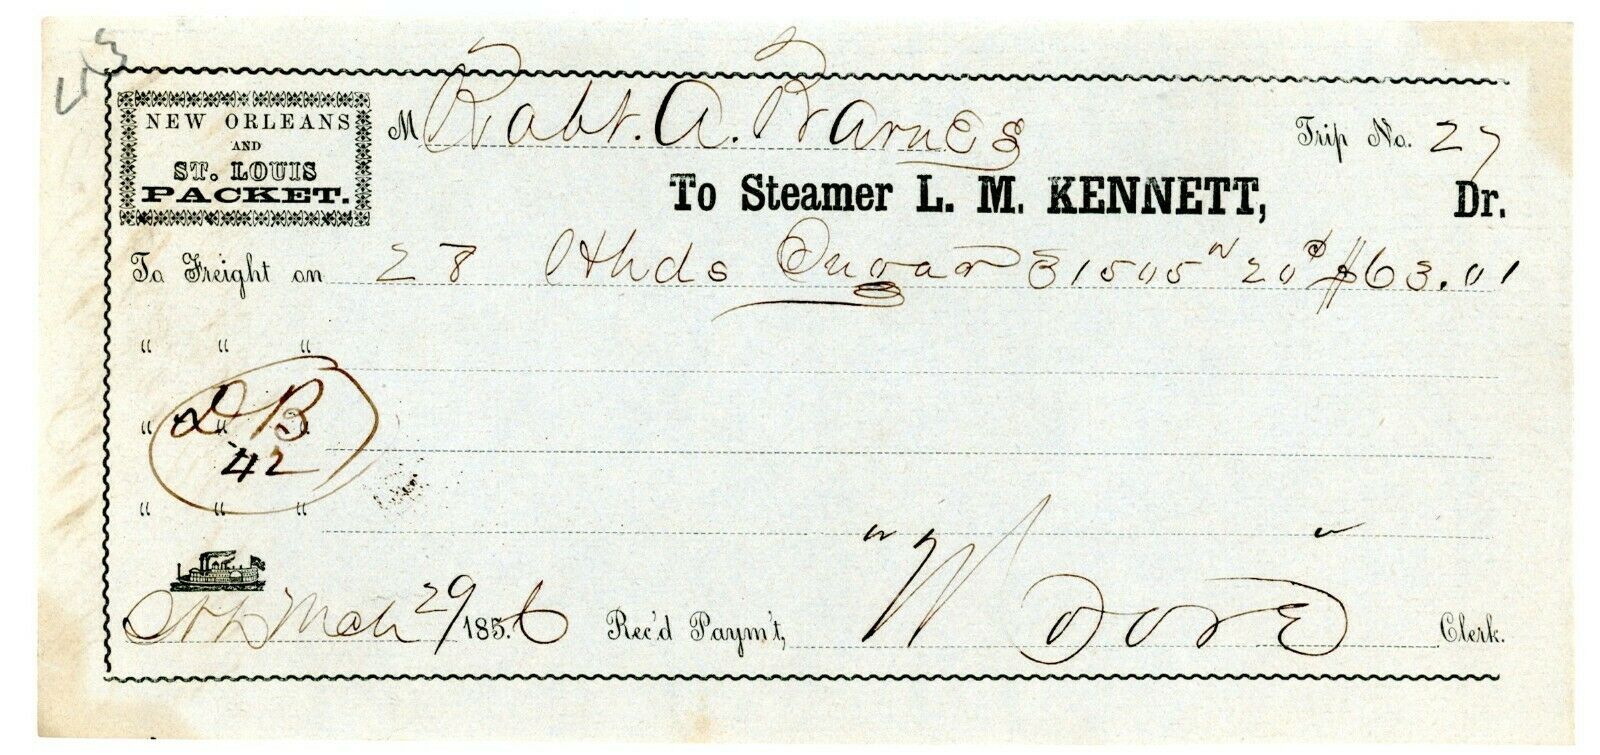 NEW ORLEANS
AND
ST. LOUIS
PACKET.
M Robt. A. Barnes Trip No. 27
To Steamer L. M. KENNETT, Dr.
To Freight on 28 Hhds Sugar 31505 20¢ $63.01
" " "
" " "
DB
42
" " "
StL Mch 29 1856 Rec'd Paym't, Clerk.